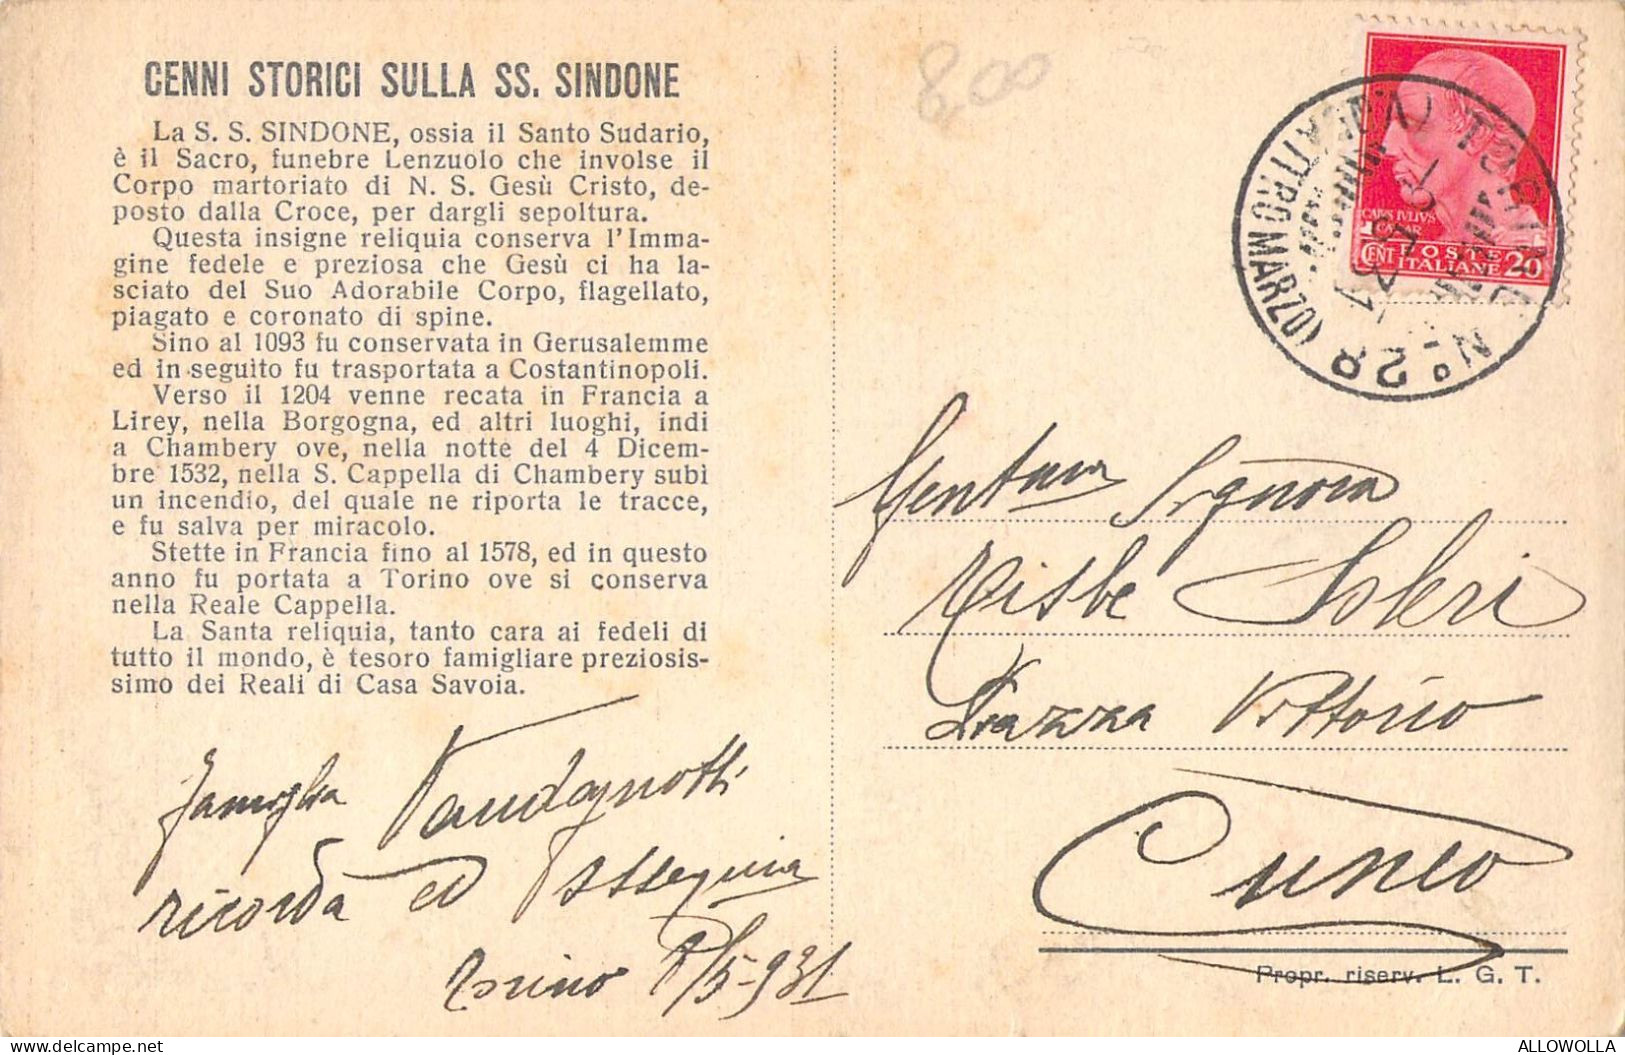 CENNI STORICI SULLA SS. SINDONE
La S. S. SINDONE, ossia il Santo Sudario,
è il Sacro, funebre Lenzuolo che involse il
Corpo martoriato di N. S. Gesù Cristo, de-
posto dalla Croce, per dargli sepoltura.
Questa insigne reliquia conserva l'Imma-
gine fedele e preziosa che Gesù ci ha la-
sciato del Suo Adorabile Corpo, flagellato,
piagato e coronato di spine.
Sino al 1093 fu conservata in Gerusalemme
ed in seguito fu trasportata a Costantinopoli.
Verso il 1204 venne recata in Francia a
Lirey, nella Borgogna, ed altri luoghi, indi
a Chambery ove, nella notte del 4 Dicem-
bre 1532, nella S. Cappella di Chambery subì
un incendio, del quale ne riporta le tracce,
e fu salva per miracolo.
Stette in Francia fino al 1578, ed in questo
anno fu portata a Torino ove si conserva
nella Reale Cappella.
La Santa reliquia, tanto cara ai fedeli di
tutto il mondo, è tesoro famigliare preziosis-
simo dei Reali di Casa Savoia.
famiglia Vaudagnotti
ricorda ed ossequia
Torino 8/5-931
8,00
CAIVS IVLIVS
CENT POSTE 20
ITALIANE
TORINO N° 28
(V. PIETRO MARZO)
Signora
Tisbe Isleri
Piazza Vittorio
Cuneo
Propr. riserv. L. G. T.
delcampe.net
ALLOWOLLA